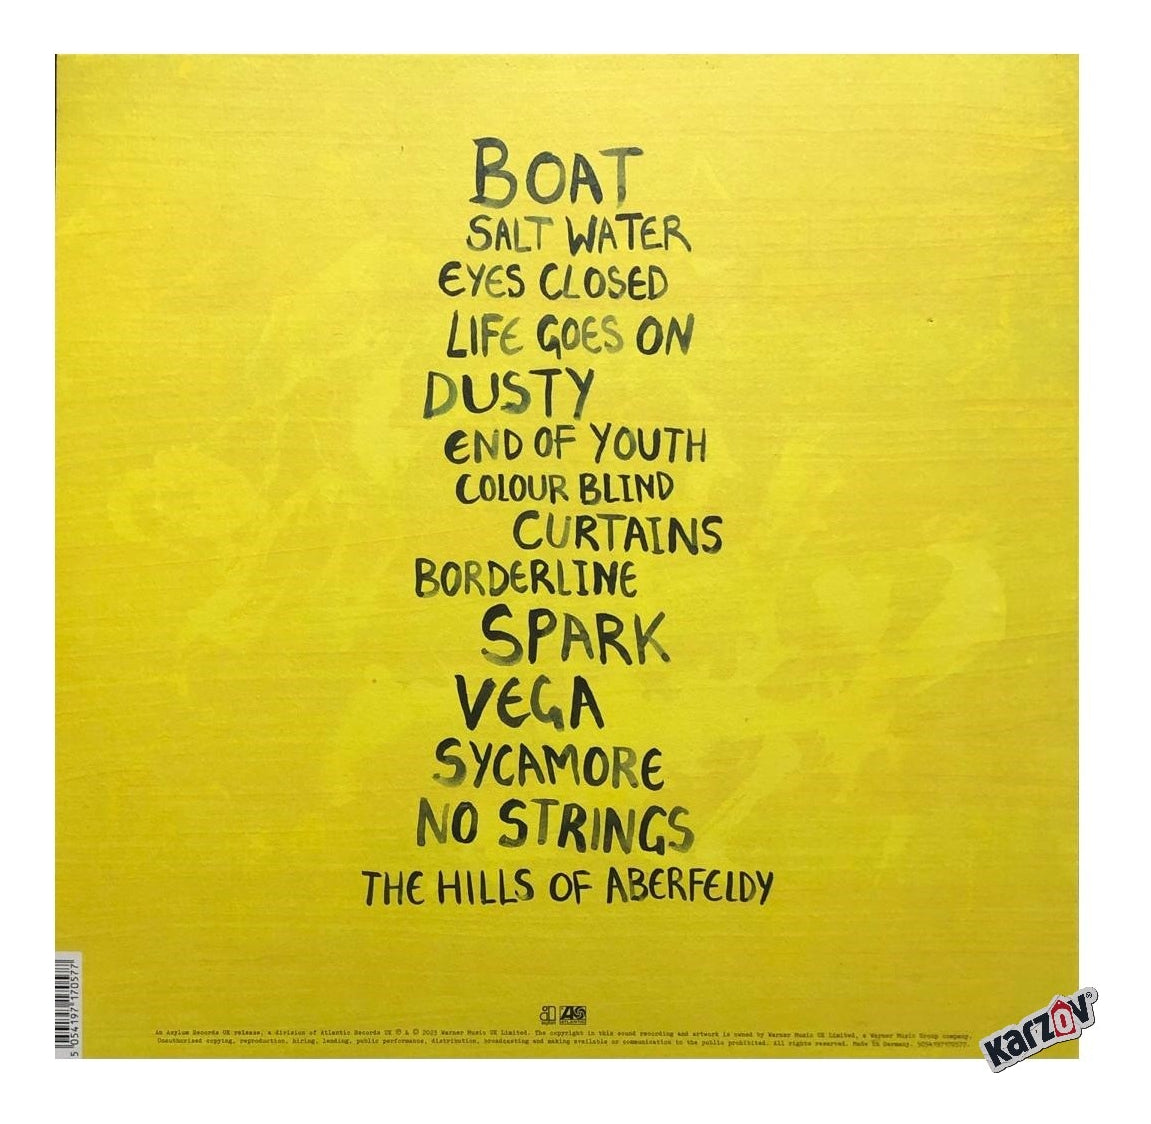 BOAT
SALT WATER
EYES CLOSED
LIFE GOES ON
DUSTY
END OF YOUTH
COLOUR BLIND
CURTAINS
BORDERLINE
SPARK
VEGA
SYCAMORE
NO STRINGS
THE HILLS OF ABERFELDY
5 054197 170577
ATLANTIC
An Asylum Records UK release, a division of Atlantic Records UK ℗ & © 2023 Warner Music UK Limited. The copyright in this sound recording and artwork is owned by Warner Music UK Limited, a Warner Music Group company.
Unauthorised copying, reproduction, hiring, lending, public performance, distribution, broadcasting and making available or communication to the public prohibited. All rights reserved. Made in Germany. 5054197170577.
Karzov®